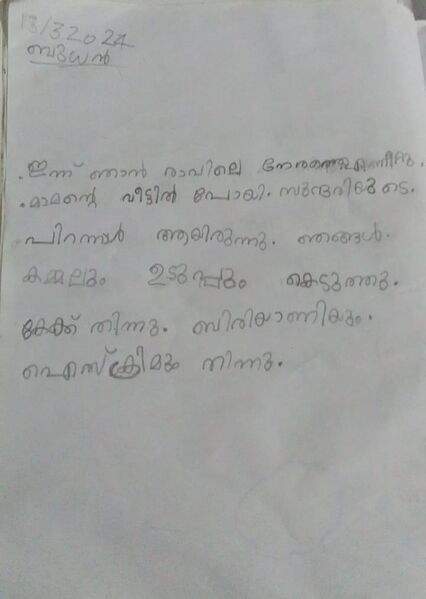 13/3 2024
ബുധൻ
. ഇന്ന് ഞാൻ രാവിലെ നേരത്തെ എണീറ്റു.
. മാമന്റെ വീട്ടിൽ പോയി. സുന്ദരിയുടെ.
പിറന്നാൾ ആയിരുന്നു. ഞങ്ങൾ.
കമ്മലും ഉടുപ്പും കൊടുത്തു.
കേക്ക് തിന്നു. ബിരിയാണിയും.
ഐസ്ക്രീമും തിന്നു.